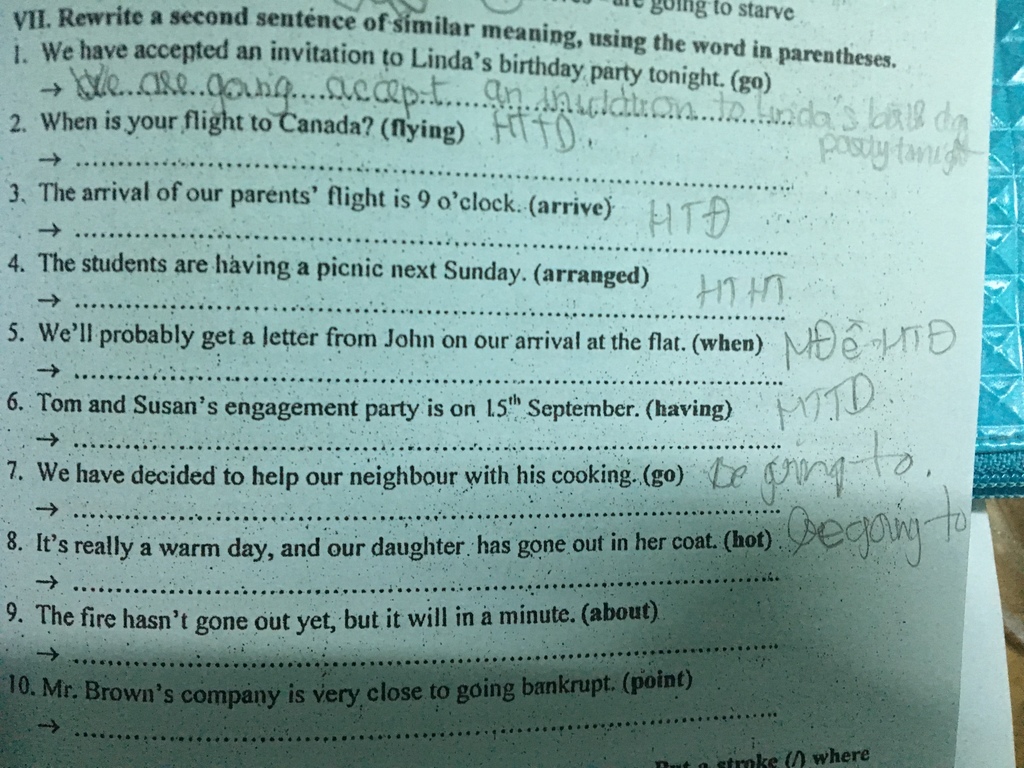 are going to starve
VII. Rewrite a second sentence of similar meaning, using the word in parentheses.
1. We have accepted an invitation to Linda's birthday party tonight. (go)
→ We are going accept an invitation to Linda's
party tonight
2. When is your flight to Canada? (flying) HTTD.
→
3. The arrival of our parents' flight is 9 o'clock. (arrive) HTĐ
→
4. The students are having a picnic next Sunday. (arranged) HTHT
→
5. We'll probably get a letter from John on our arrival at the flat. (when) MĐề HTĐ
→
6. Tom and Susan's engagement party is on 15th September. (having) HTTD
→
7. We have decided to help our neighbour with his cooking. (go) be going to.
→
8. It's really a warm day, and our daughter has gone out in her coat. (hot) Be going to
→
9. The fire hasn't gone out yet, but it will in a minute. (about)
→
10. Mr. Brown's company is very close to going bankrupt. (point)
→
Put a stroke (/) where